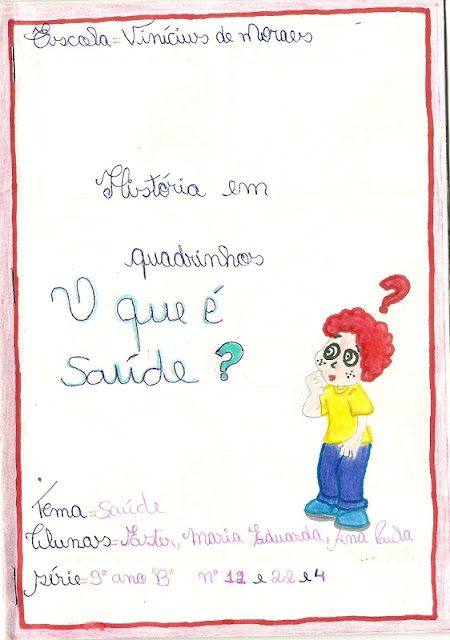 Escola = Vinícius de Moraes
História em
quadrinhos
O que é
Saúde?
?
Tema = Saúde
Alunas = Ester, Maria Eduarda, Ana Paula
série = 9º ano "B" nº 12 e 22 e 4